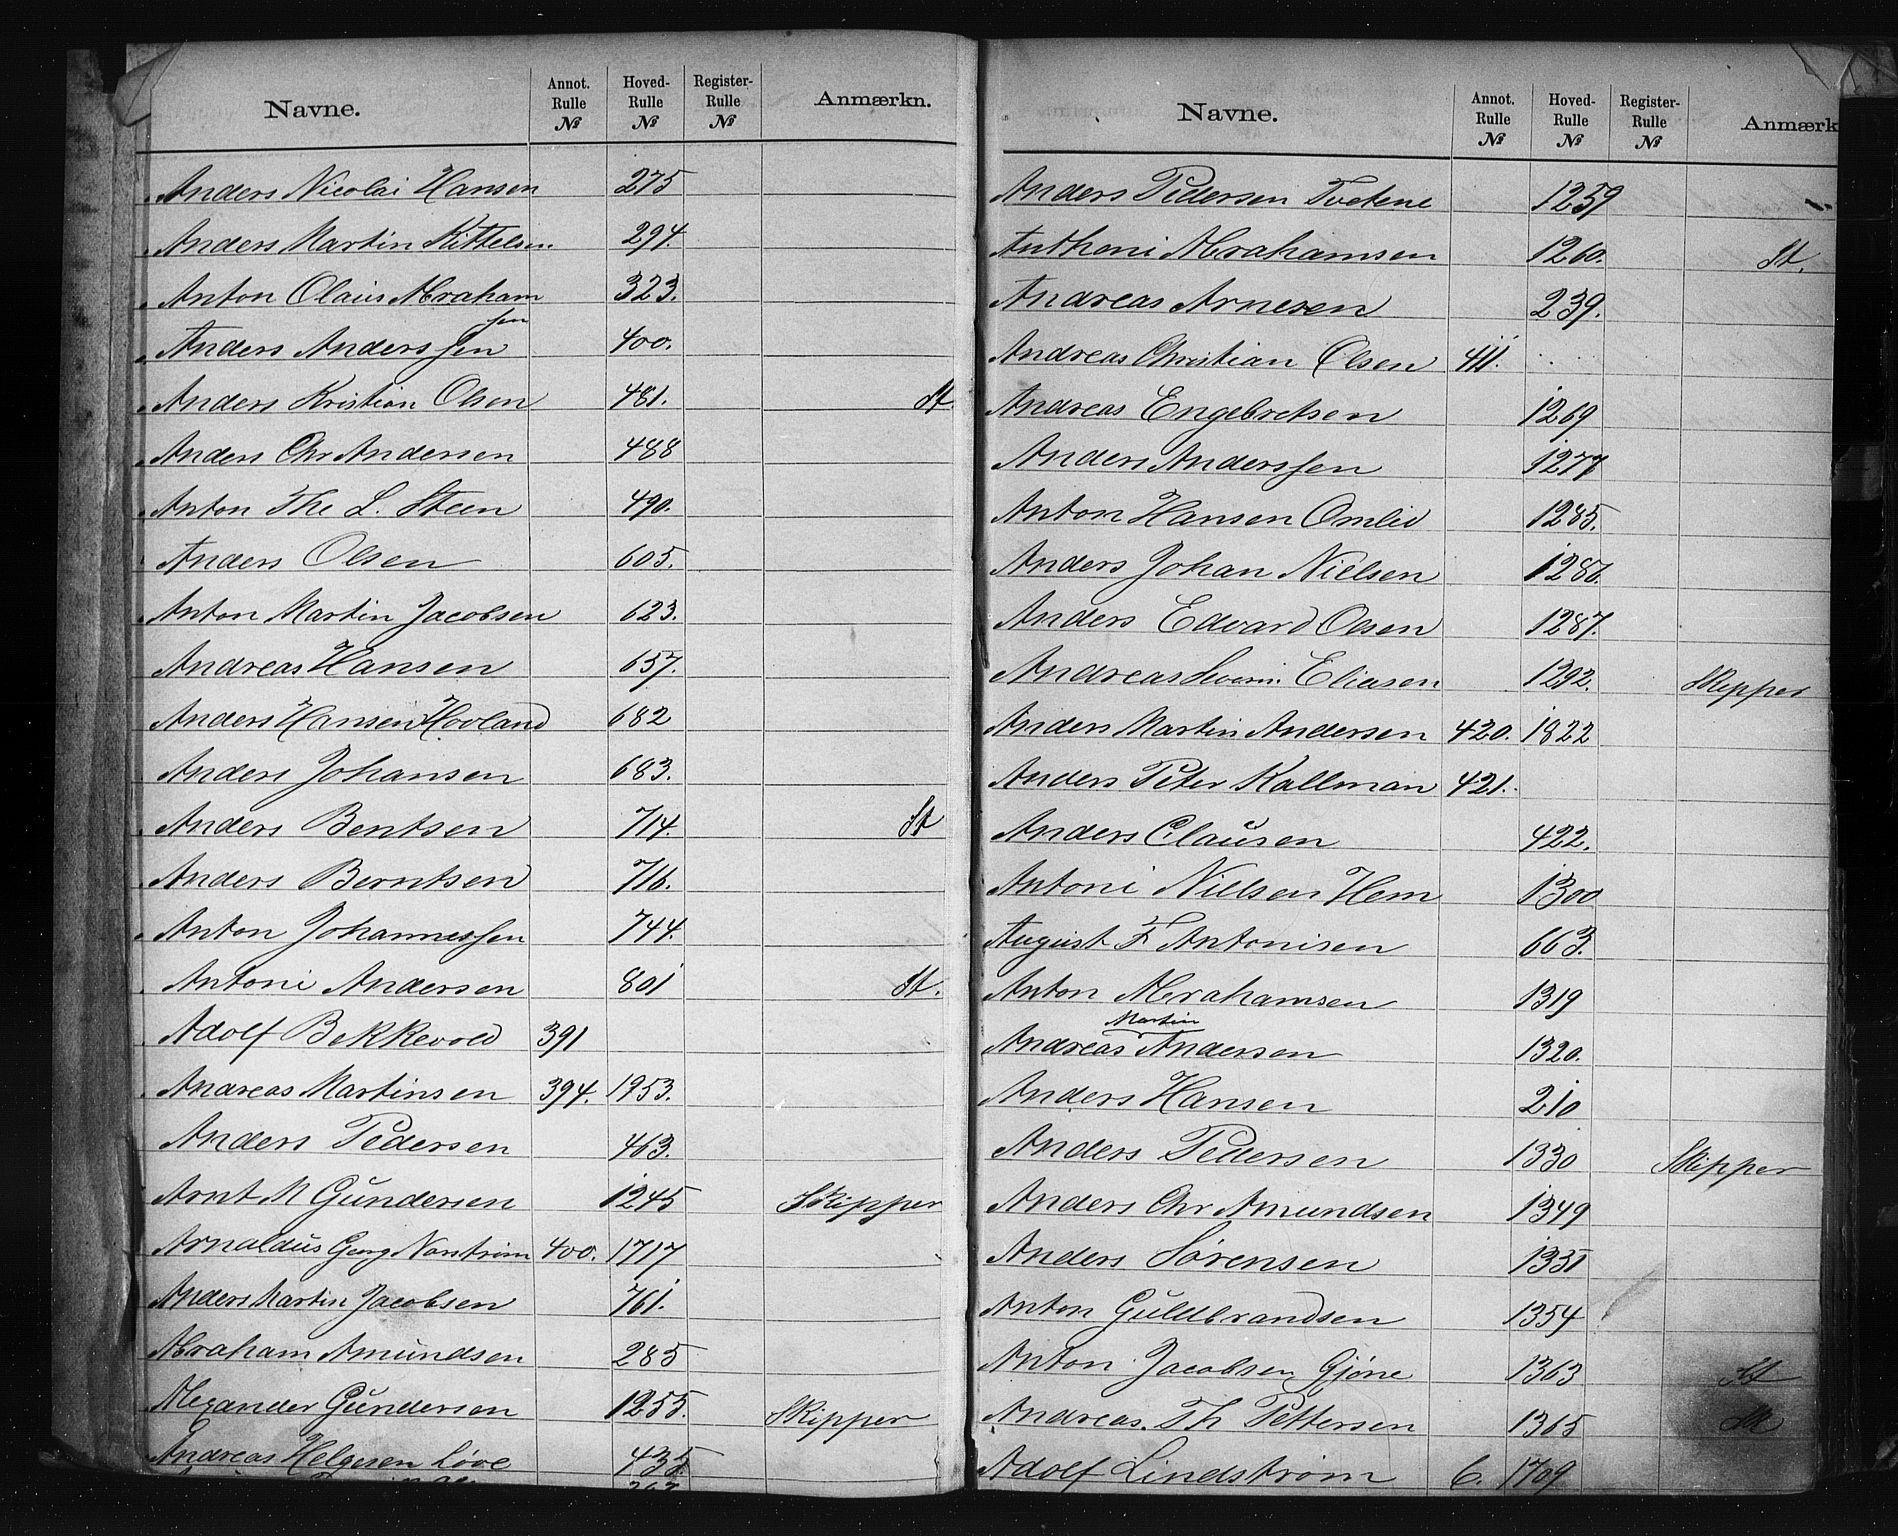 Navne. Annot. Rulle № Hoved- Rulle № Register- Rulle № Anmærkn.
Anders Nicolai Hansen 275
Anders Martin Kittelsen 294.
Anton Olaus Abraham 323.
sen
Anders Anderssen 400.
Anders Kristian Olsen 481. St.
Anders Chr Andersen 488
Anton The L. Steen 490.
Anders Olsen 605.
Anton Martin Jacobsen 623.
Andreas Hansen 657.
Anders Hansen Hovland 682
Anders Johansen 683.
Anders Bentsen 714. St
Anders Berntsen 716.
Anton Johannessen 744.
Antoni Andersen 801 St.
Adolf Bekkevold 391
Andreas Martinsen 394. 1953.
Anders Pedersen 463.
Arnt M Gundersen 1245 Skipper
Arnaldus Georg Norstrøm 400. 1717
Anders Martin Jacobsen 761.
Abraham Amundsen 285
Alexander Gundersen 1255. Skipper
Andreas Helgesen Løve 435
Navne. Annot. Rulle № Hoved- Rulle № Register- Rulle № Anmærk
Anders Pedersen Tvetene 1259
Anthoni Abrahamsen 1260. St.
Andreas Arnesen 239.
Andreas Christian Olsen 411.
Andreas Engebretsen 1269
Anders Anderssen 1277
Anton Hansen Omlid 1285.
Anders Johan Nielsen 1286.
Anders Edvard Olsen 1287.
Andreas Severin Eliasen 1292. Skipper
Anders Martin Andersen 420. 1822
Anders Peter Kallman 421.
Anders Clausen 422.
Antoni Nielsen Hem 1300
August F Antonisen 663.
Anton Abrahamsen 1319
Martin
Andreas Andersen 1320.
Anders Hansen 210
Anders Pedersen 1330 Skipper
Anders Chr Amundsen 1349
Anders Sørensen 1351
Anton Guldbrandsen 1354
Anton Jacobsen Gjøne 1363 St
Andreas Th Pettersen 1365 St
Adolf Lindstrøm 6. 1709